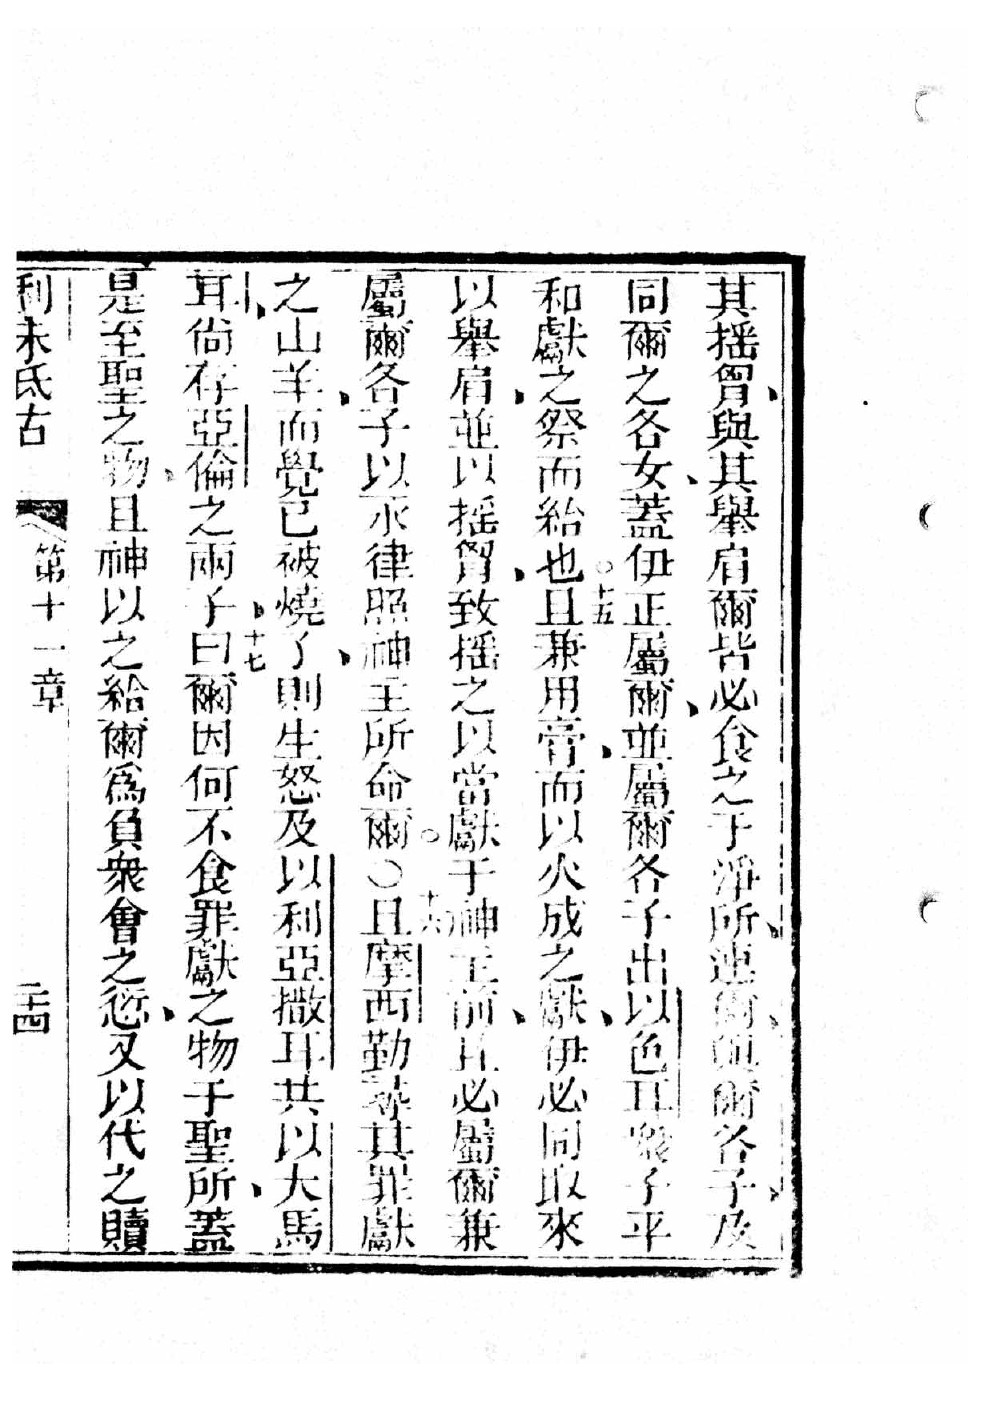 其摇胷、與其擧肩爾皆必食之于淨所、連爾與爾各子、及
同爾之各女、蓋伊正屬爾、並屬爾各子出以色耳衆子平
和獻之祭而給也○十五且兼用膏、而以火成之獻、伊必同取來
以擧肩、並以摇胷、致摇之以當獻于神主前、且必屬爾兼
屬爾各子、以永律照神、主所命爾○○十六且摩西勤尋其罪獻
之山羊、而覺已被燒了、則生怒及以利亞撒耳共以大馬
耳、尚存亞倫之兩子、十七曰爾因何不食罪獻之物于聖所、蓋
是至聖之物、且神以之給爾爲負衆會之愆、又以代之贖
利未氏古 第十一章 二十四